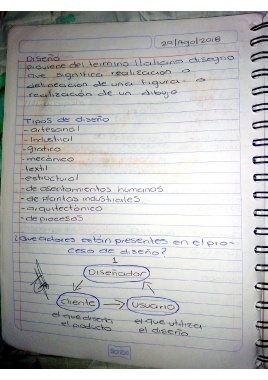 29/Ago/2018
Diseño
Proviene del termino Italiano disegno
que significa realización o
delineación de una figura o
realización de un dibujo
Tipos de diseño
- artesanal
- Industrial
- gráfico
- mecánico
- textil
- estructural
- de asentamientos humanos
- de Plantas industriales
- arquitectónico
- de procesos
¿Que actores están presentes en el pro-
ceso de diseño?
1
Diseñador
Cliente
Usuario
el que diseña
el producto
el que utiliza
el diseño
Scribe